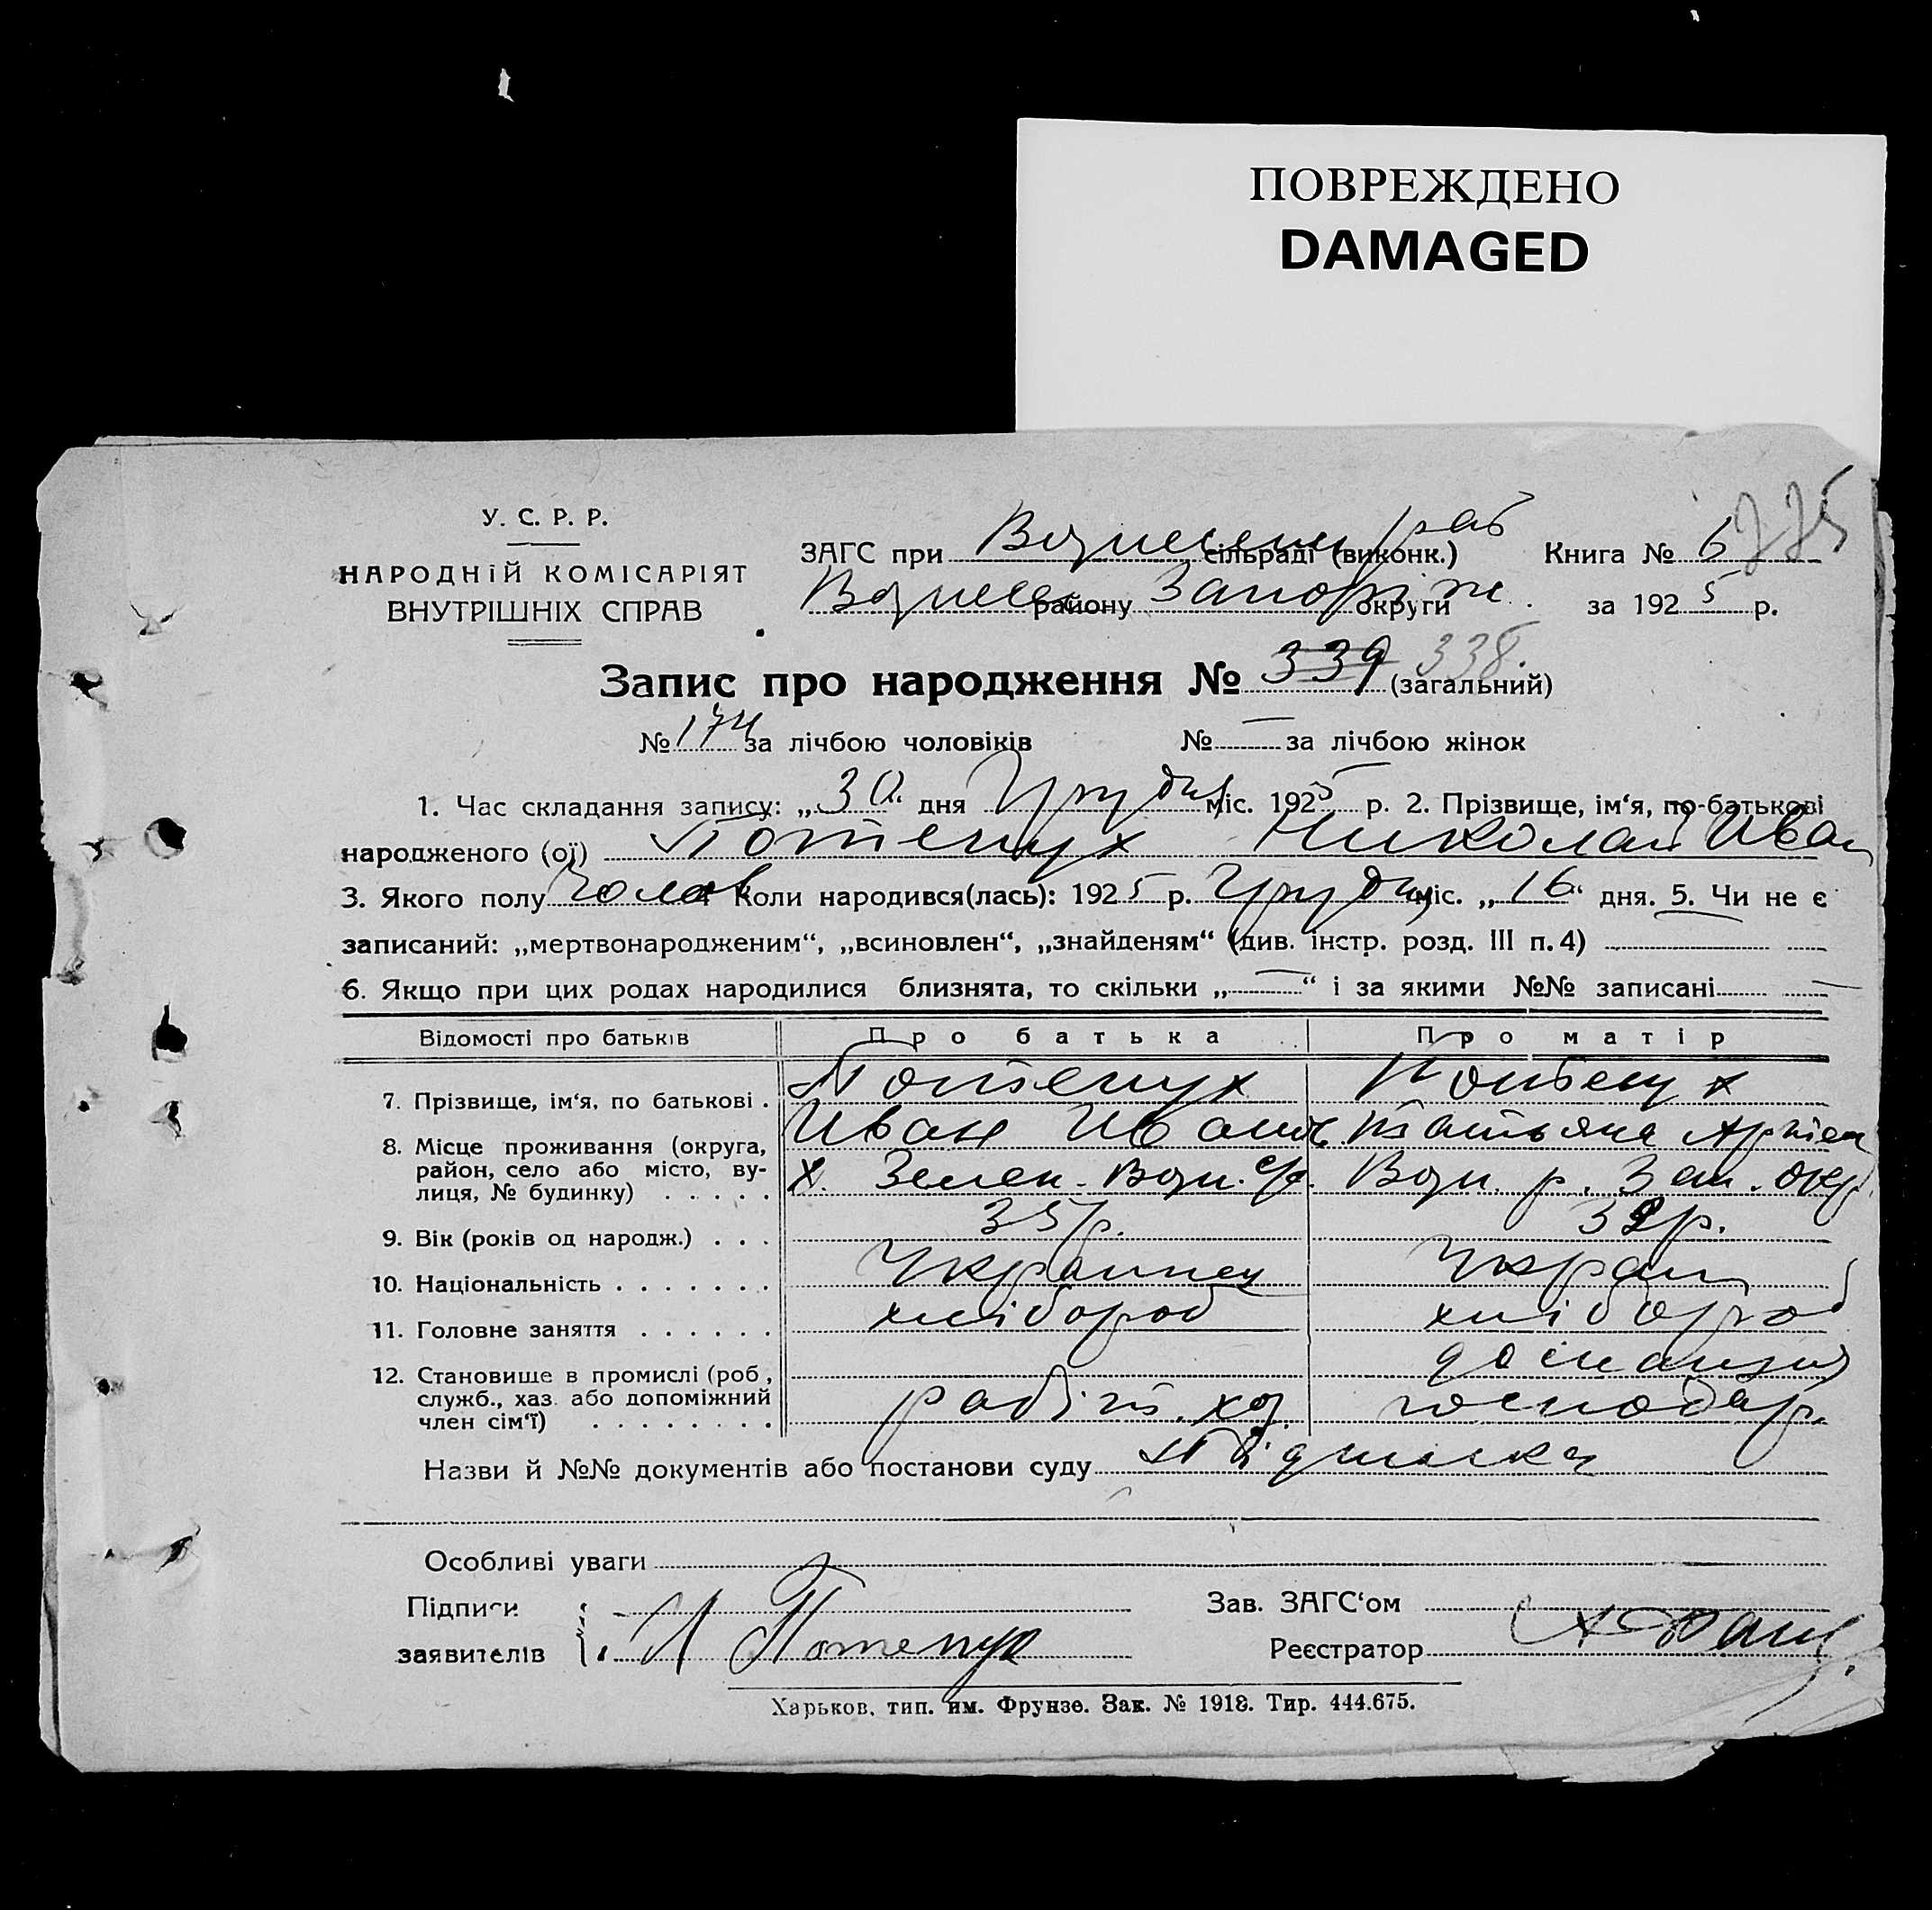 ПОВРЕЖДЕНО
DAMAGED
У. С. Р. Р.
НАРОДНІЙ КОМІСАРІЯТ
ВНУТРІШНІХ СПРАВ
ЗАГС при Вознесен раб сільраді (виконк.) Книга № 6
Вознесен району Запоріж округи за 1925 р.
Запис про народження № 339 338 (загальний)
№ 174 за лічбою чоловіків № — за лічбою жінок
1. Час складання запису: „30“ дня Грудня міс. 1925 р. 2. Прізвище, ім‘я, по-батькові
народженого (ої) Потепух Николай Иван
3. Якого полу Чолов 4 Коли народився(лась): 1925 р. Грудня міс. „16“ дня. 5. Чи не є
записаний: „мертвонародженим“, „всиновлен“, „знайденям“ (див. інстр. розд. III п. 4)
6. Якщо при цих родах народилися близнята, то скільки „—“ і за якими №№ записані —
Відомості про батьків Про батька Про матір
7. Прізвище, ім‘я, по батькові . Потепух Потепух
Иван Иванов Татьяна
8. Місце проживання (округа, район, село або місто, ву-лиця, № будинку) . . . . . х. Зелен. Возн. с/р. Возн. р. Зап. окр.
9. Вік (років од народж.) . . . 35 р. 32 р.
10. Національність . . . . . . . Украинец Украин
11. Головне заняття . . . . . . хлібороб хлібороб
12. Становище в промислі (роб, служб., хаз. або допоміжний член сім‘ї) . . . . . . . . господар.
Назви й №№ документів або постанови суду
Особливі уваги
Підписи
заявителів И Потепух
Зав. ЗАГС‘ом
Реєстратор
Харьков, тип. им. Фрунзе. Зак. № 1918. Тир. 444.675.